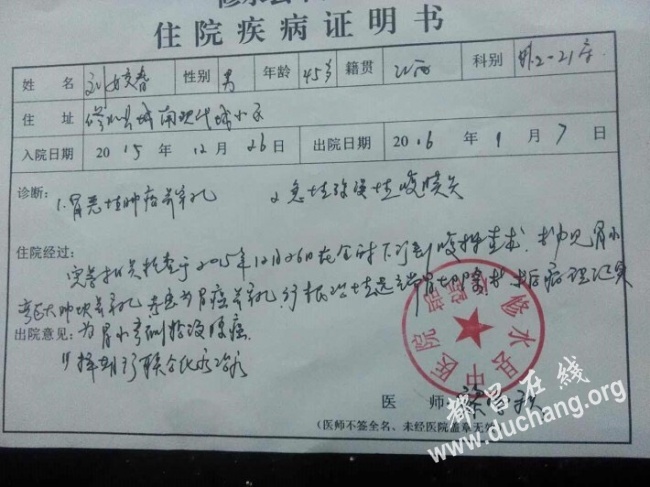 住院疾病证明书
姓 名 刘 春 性别 男 年龄 45岁 籍贯 江西 科别 外2-21床
住 址 修水县城南现代城小区
入院日期 2015 年 12 月 26 日 出院日期 2016 年 1 月 7 日
诊断: 1.胃恶性肿瘤并穿孔 2.急性弥漫性腹膜炎
住院经过: 完善相关检查于2015年12月26日在全麻下行剖腹探查术,术中见胃小
弯巨大肿块并穿孔,考虑为胃癌并穿孔,行根治性远端胃切除术,术后病理结果
为胃小弯侧 腺癌
出院意见:
1)择期行联合化疗治疗
修水县中医院
医 师:
(医师不签全名、未经医院盖章无效)
都昌在线
www.duchang.org